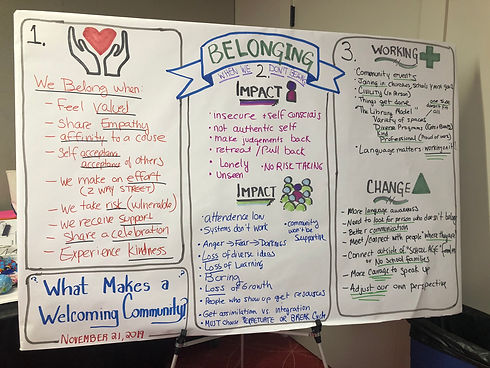 1.
We Belong when:
- Feel valued
- Share Empathy
- affinity to a cause
- Self acceptance
acceptance of others
- we make an effort
(2 WAY STREET)
- we take risk (vulnerable)
- we receive support
- Share a celebration
- Experience Kindness
What Makes a
Welcoming Community?
NOVEMBER 21, 2019
BELONGING
WHEN WE DON'T BELONG
2.
IMPACT
• insecure + self conscious
• not authentic self
• make judgements back
• retreat / Pull back
• Lonely
• NO RISK TAKING
• Unseen
IMPACT
• attendance low
• Systems don't work
• community won't be supportive
• Anger → Fear → Darkness
• Loss of diverse ideas
• Loss of Learning
• Boring
• Loss of Growth
• People who show up get resources
• Get assimilation vs integration
• MUST choose PERPETUATE OR BREAK Cycle
3.
WORKING
• Community events
• Joining in churches, schools
• Civility (in Person)
• Things get done
• The Library Model
Variety of spaces
Diverse Programs
Kind
Professional
• Language matters
CHANGE
• More language awareness
• Need to look for person who doesn't belong
• Better communication
• Meet/connect with people "where they are"
• Connect outside of "SCHOOL AGE" families
or No School families
• More courage to speak up
• Adjust our own perspective